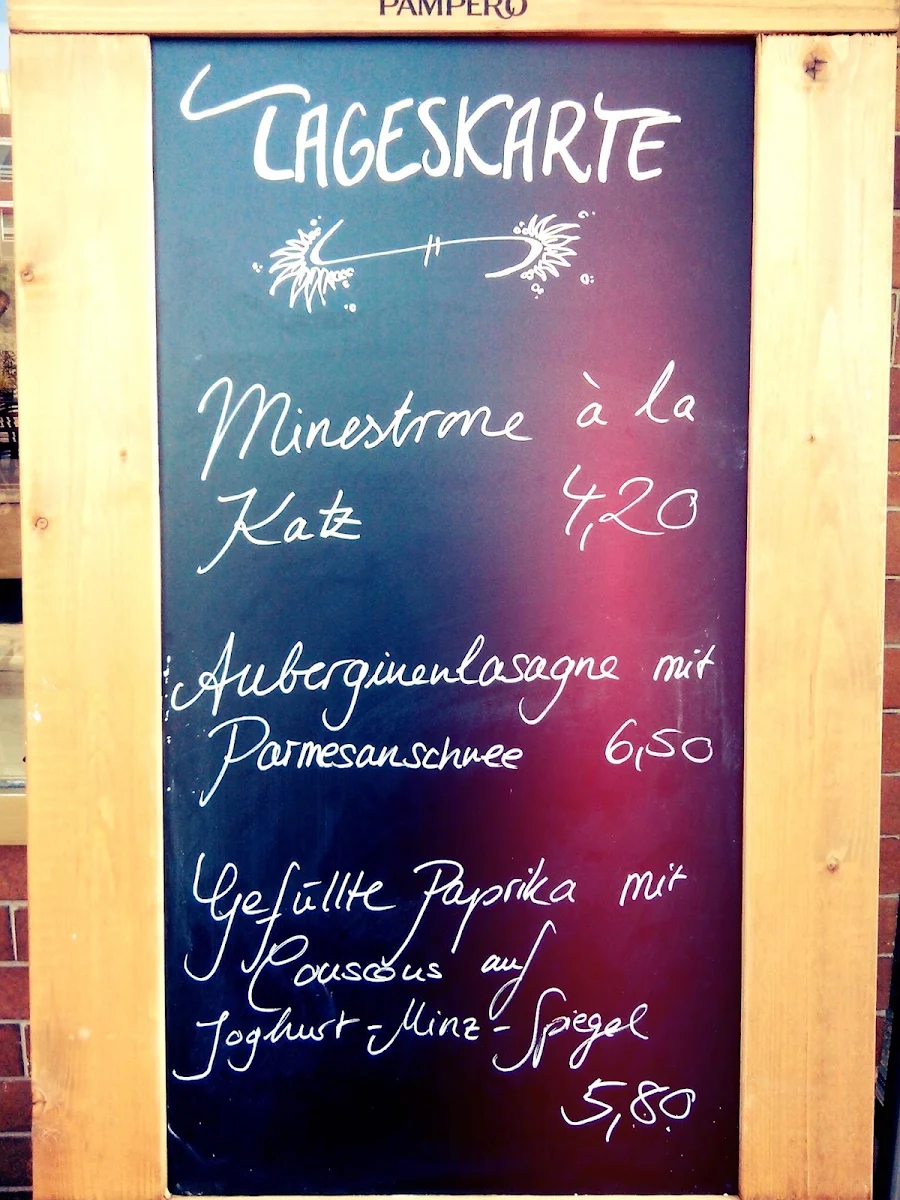 PAMPERO
TAGESKARTE
Minestrone à la
Katz 4,20
Auberginenlasagne mit
Parmesanschnee 6,50
Gefüllte Paprika mit
Couscous auf
Joghurt-Minz-Spiegel
5,80